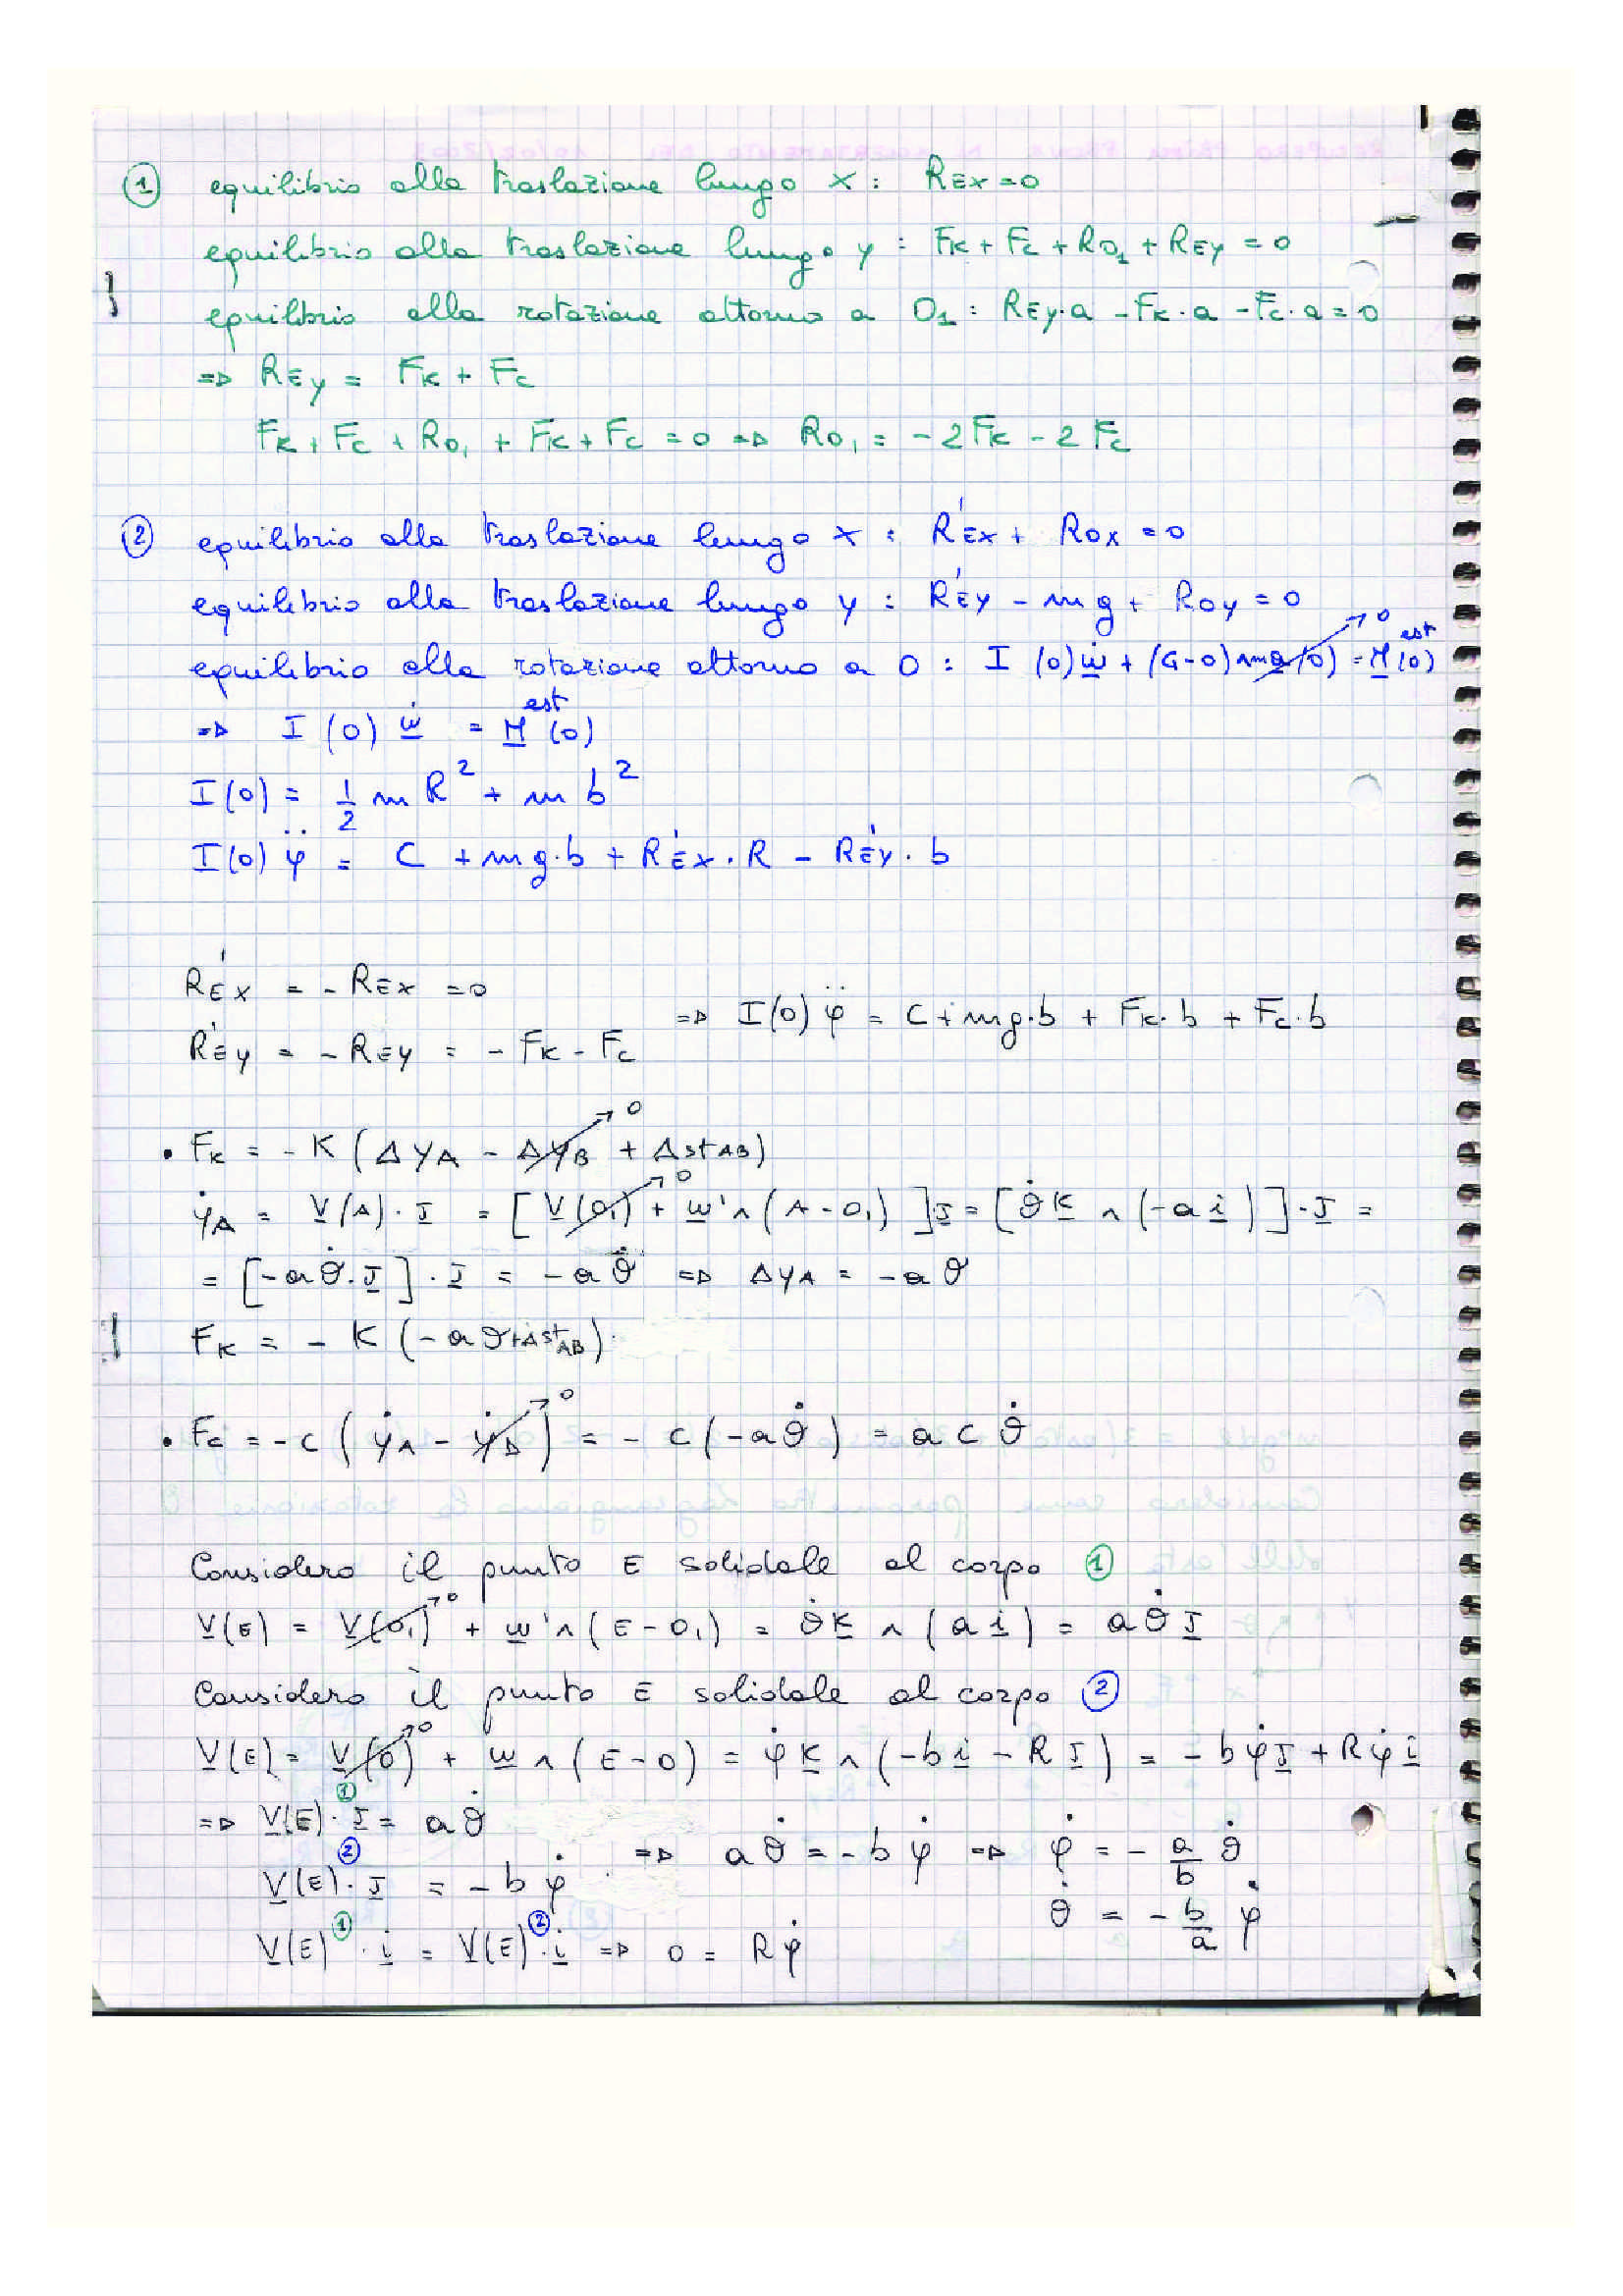 ① equilibrio alla traslazione lungo x : REx = 0
equilibrio alla traslazione lungo y : FK + Fc + RO₁ + REy = 0
equilibrio alla rotazione attorno a O₁ : REy·a - FK·a - Fc·a = 0
=> REy = FK + Fc
FK + Fc + RO₁ + FK + Fc = 0 => RO₁ = -2FK - 2Fc
② equilibrio alla traslazione lungo x : R'Ex + ROx = 0
equilibrio alla traslazione lungo y : R'Ey - mg + ROy = 0
equilibrio alla rotazione attorno a O : I(O)ω̇ + (G-O)ma(O) → 0 = M^est(O)
=> I(O) ω̇ = M^est(O)
I(O) = 1/2 mR² + mb²
I(O) φ̈ = C + mg·b + R'Ex·R - R'Ey·b
R'Ex = -REx = 0
R'Ey = -REy = -FK - Fc => I(O) φ̈ = C + mg·b + FK·b + Fc·b
• FK = -K (ΔyA - ΔyB → 0 + ΔstAB)
ẏA = V(A)·j = [V(O₁) → 0 + ω' ∧ (A-O₁)]j = [ϑ̇ k ∧ (-a i)]·j =
= [-aϑ̇·j]·j = -aϑ̇ => ΔyA = -aϑ
FK = -K (-aϑ+ΔstAB)
• Fc = -c (ẏA - ẏD → 0) = -c(-aϑ̇) = a c ϑ̇
Considero il punto E solidale al corpo ①
V(E) = V(O₁) → 0 + ω' ∧ (E-O₁) = ϑ̇ k ∧ (a i) = aϑ̇ j
Considero il punto E solidale al corpo ②
V(E) = V(O) → 0 + ω ∧ (E-O) = φ̇ k ∧ (-b i - R j) = -bφ̇ j + Rφ̇ i
=> V(E)^①·j = aϑ̇
V(E)^②·j = -bφ̇ => aϑ̇ = -bφ̇ => φ̇ = -a/b ϑ̇
ϑ̇ = -b/a φ̇
V(E)^①·i = V(E)^②·i => 0 = Rφ̇